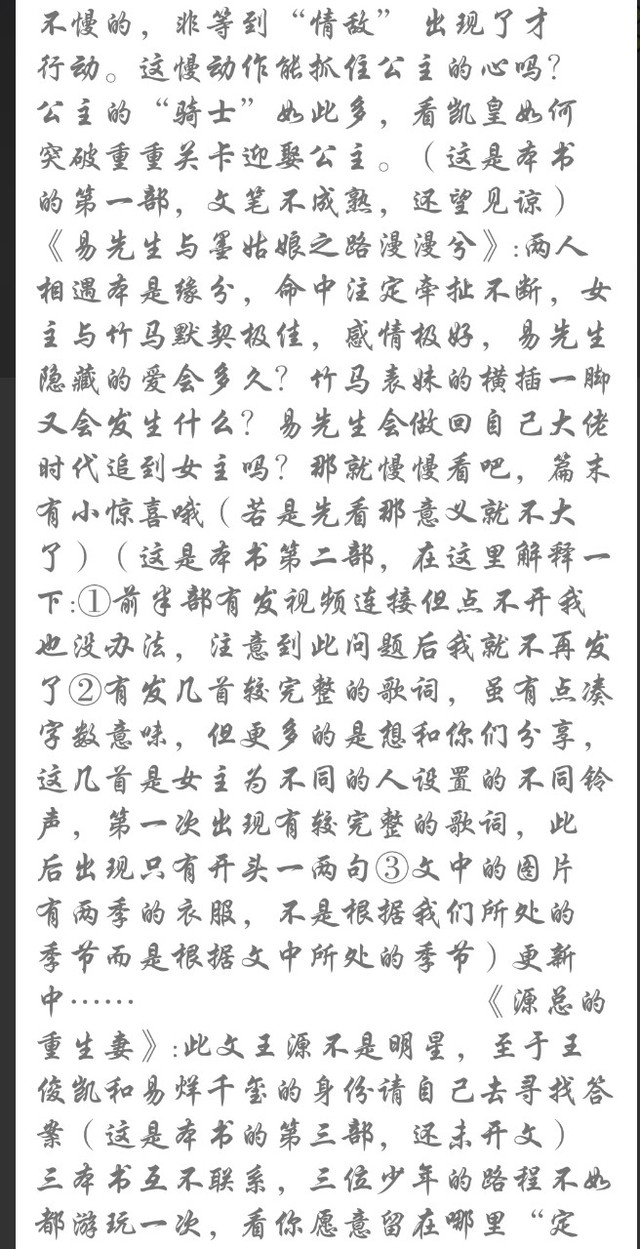 不慢的，非等到“情敌”出现了才
行动。这慢动作能抓住公主的心吗？
公主的“骑士”如此多，看凯皇如何
突破重重关卡迎娶公主。（这是本书
的第一部，文笔不成熟，还望见谅）
《易先生与墨姑娘之路漫漫兮》:两人
相遇本是缘分，命中注定牵扯不断，女
主与竹马默契极佳，感情极好，易先生
隐藏的爱会多久？竹马表妹的横插一脚
又会发生什么？易先生会做回自己大佬
时代追到女主吗？那就慢慢看吧，篇末
有小惊喜哦（若是先看那意义就不大
了）（这是本书第二部，在这里解释一
下:①前半部有发视频连接但点不开我
也没办法，注意到此问题后我就不再发
了②有发几首较完整的歌词，虽有点凑
字数意味，但更多的是想和你们分享，
这几首是女主为不同的人设置的不同铃
声，第一次出现有较完整的歌词，此
后出现只有开头一两句③文中的图片
有两季的衣服，不是根据我们所处的
季节而是根据文中所处的季节）更新
中…… 《源总的
重生妻》:此文王源不是明星，至于王
俊凯和易烊千玺的身份请自己去寻找答
案（这是本书的第三部，还未开文）
三本书互不联系，三位少年的路程不如
都游玩一次，看你愿意留在哪里“定